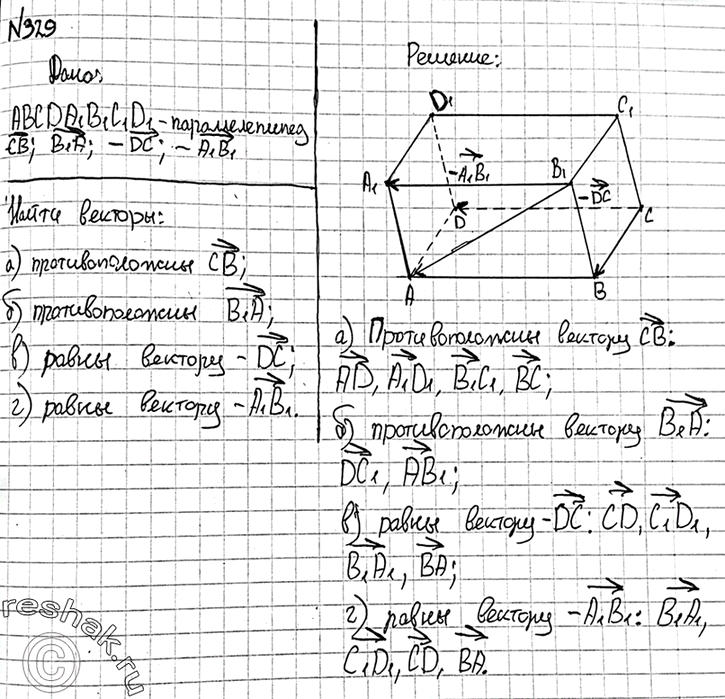 N329
Дано:
ABCDA₁B₁C₁D₁ - параллелепипед
CB; B₁A; -DC; -A₁B₁
Найти векторы:
а) противоположны CB;
б) противоположны B₁A;
в) равны вектору -DC;
г) равны вектору -A₁B₁.
Решение:
D₁
C₁
A₁
-A₁B₁
B₁
-DC
D
C
A
B
а) Противоположны вектору CB:
AD, A₁D₁, B₁C₁, BC;
б) противоположны вектору B₁A:
DC₁, AB₁;
в) равны вектору -DC: CD, C₁D₁,
B₁A₁, BA;
г) равны вектору -A₁B₁: B₁A₁,
C₁D₁, CD, BA.
reshak.ru
©